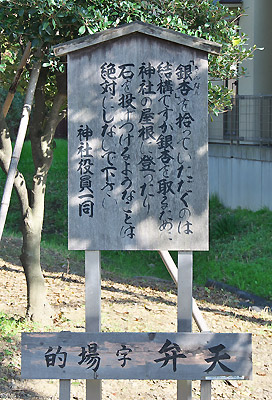 「銀杏を拾っていただくのは
ぎんなん
結構ですが銀杏を取るため、
神社の屋根に登ったり
石を投げつけるようなことは
絶対にしないで下さい
神社役員一同
天弁字場的